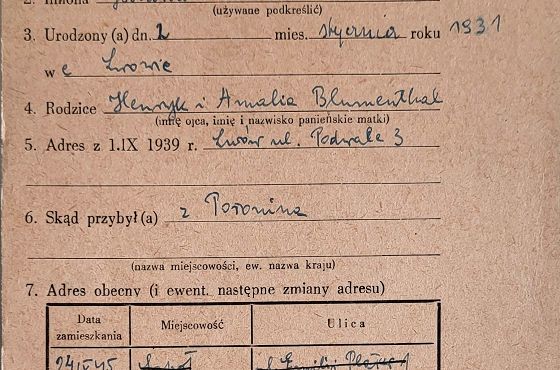 2. Imiona
(używane podkreślić)
3. Urodzony (a) dn. 2 mies. stycznia roku 1931
w e Lwowie
4. Rodzice Henryk i Amalia Blumenthal
(imię ojca, imię i nazwisko panieńskie matki)
5. Adres z 1.IX 1939 r. Lwów ul. Podwale 3
6. Skąd przybył (a) z Poronina
(nazwa miejscowości, ew. nazwa kraju)
7. Adres obecny (i ewent. następne zmiany adresu)
Data zamieszkania Miejscowość Ulica
ul. Emilii Plater